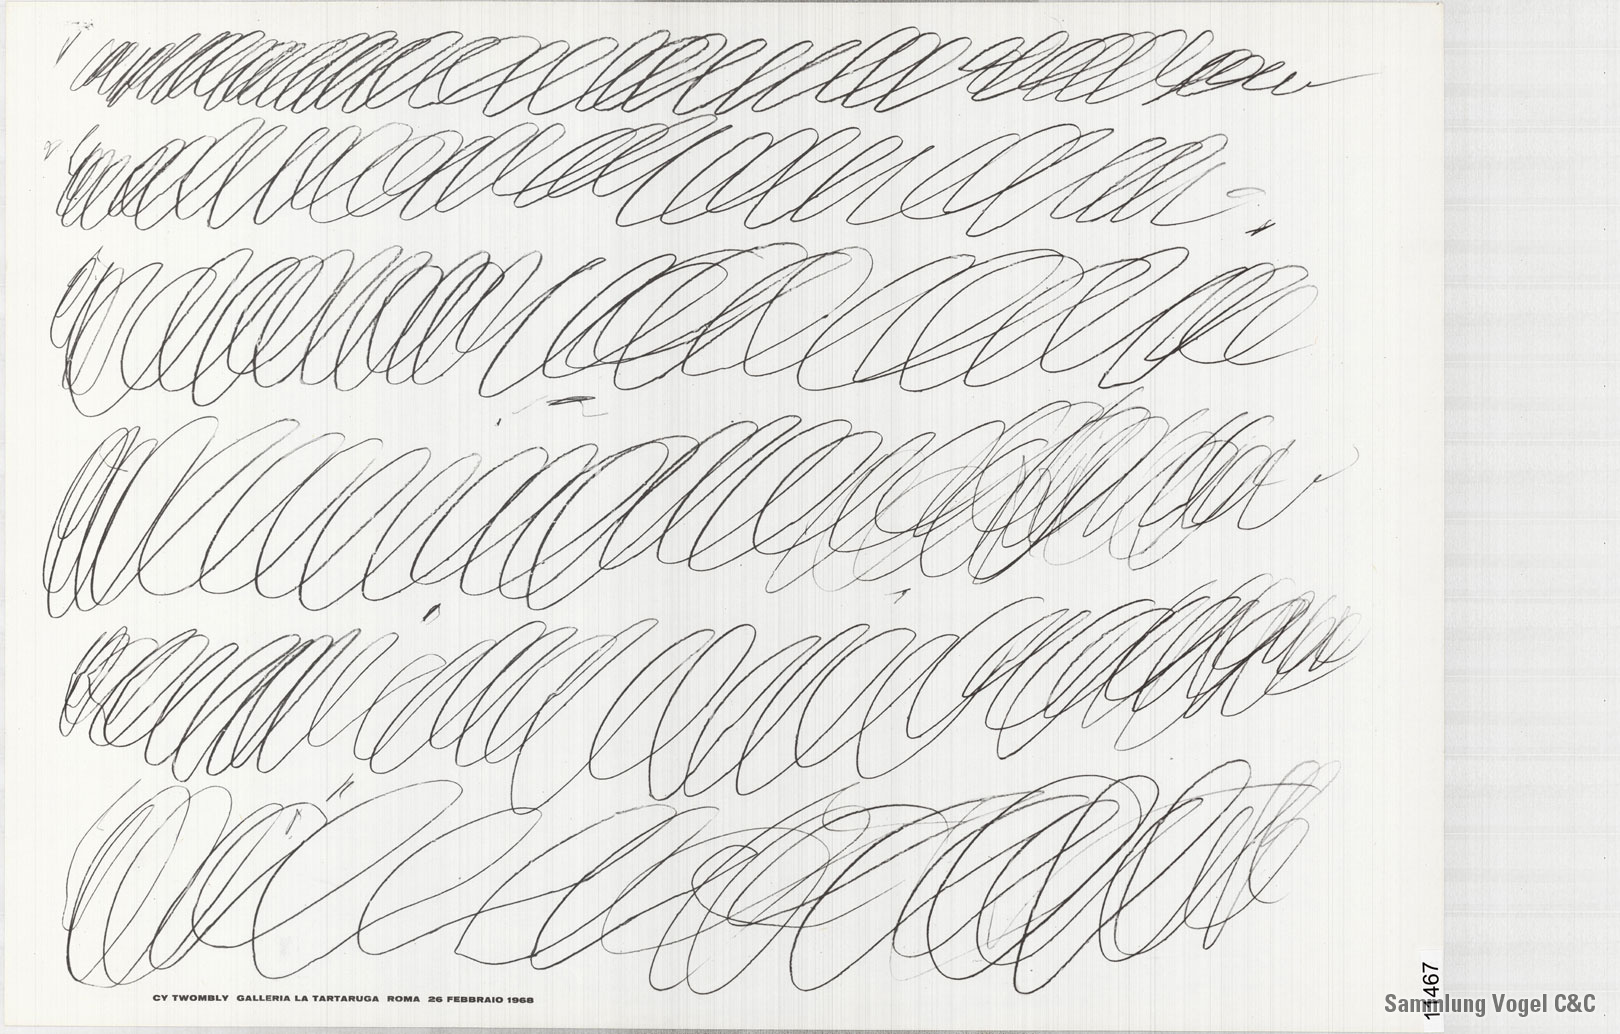 CY TWOMBLY GALLERIA LA TARTARUGA ROMA 26 FEBBRAIO 1968
11467
Sammlung Vogel C&C